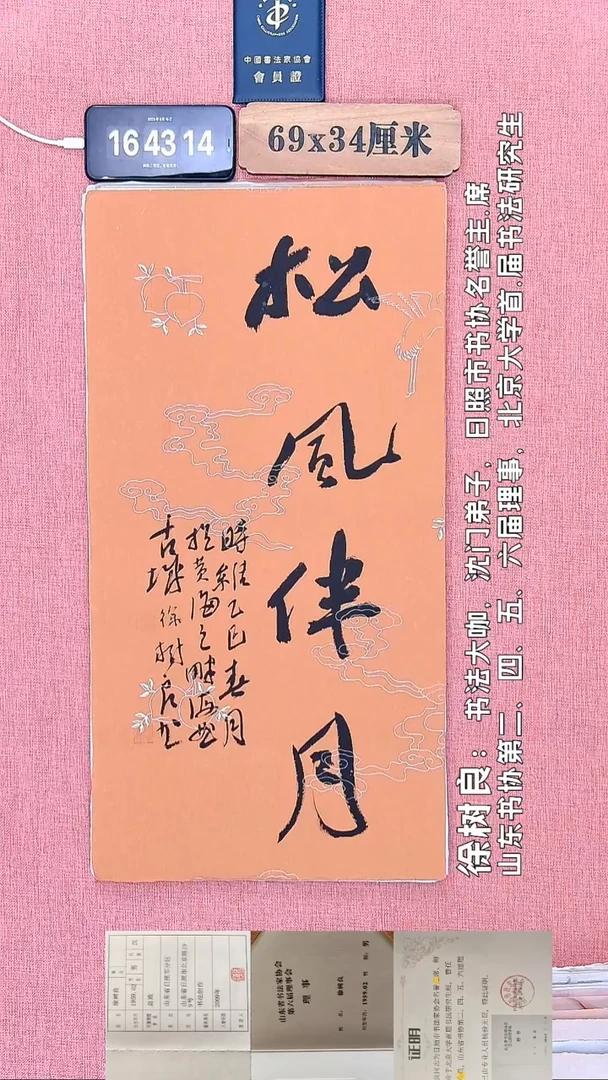 中國書法家協會
會員證
16 43 14
69x34厘米
松風伴月
時維乙巳春月
於黄海之畔海曲
古城徐樹良書
徐树良：书法大咖，沈门弟子，日照市书协名誉主.席
山东书协第二、四、五、六届理事，北京大学首.届书法研究生
山东省书法家协会
第六届理事会
理事
徐树良
男
1959.02
证明